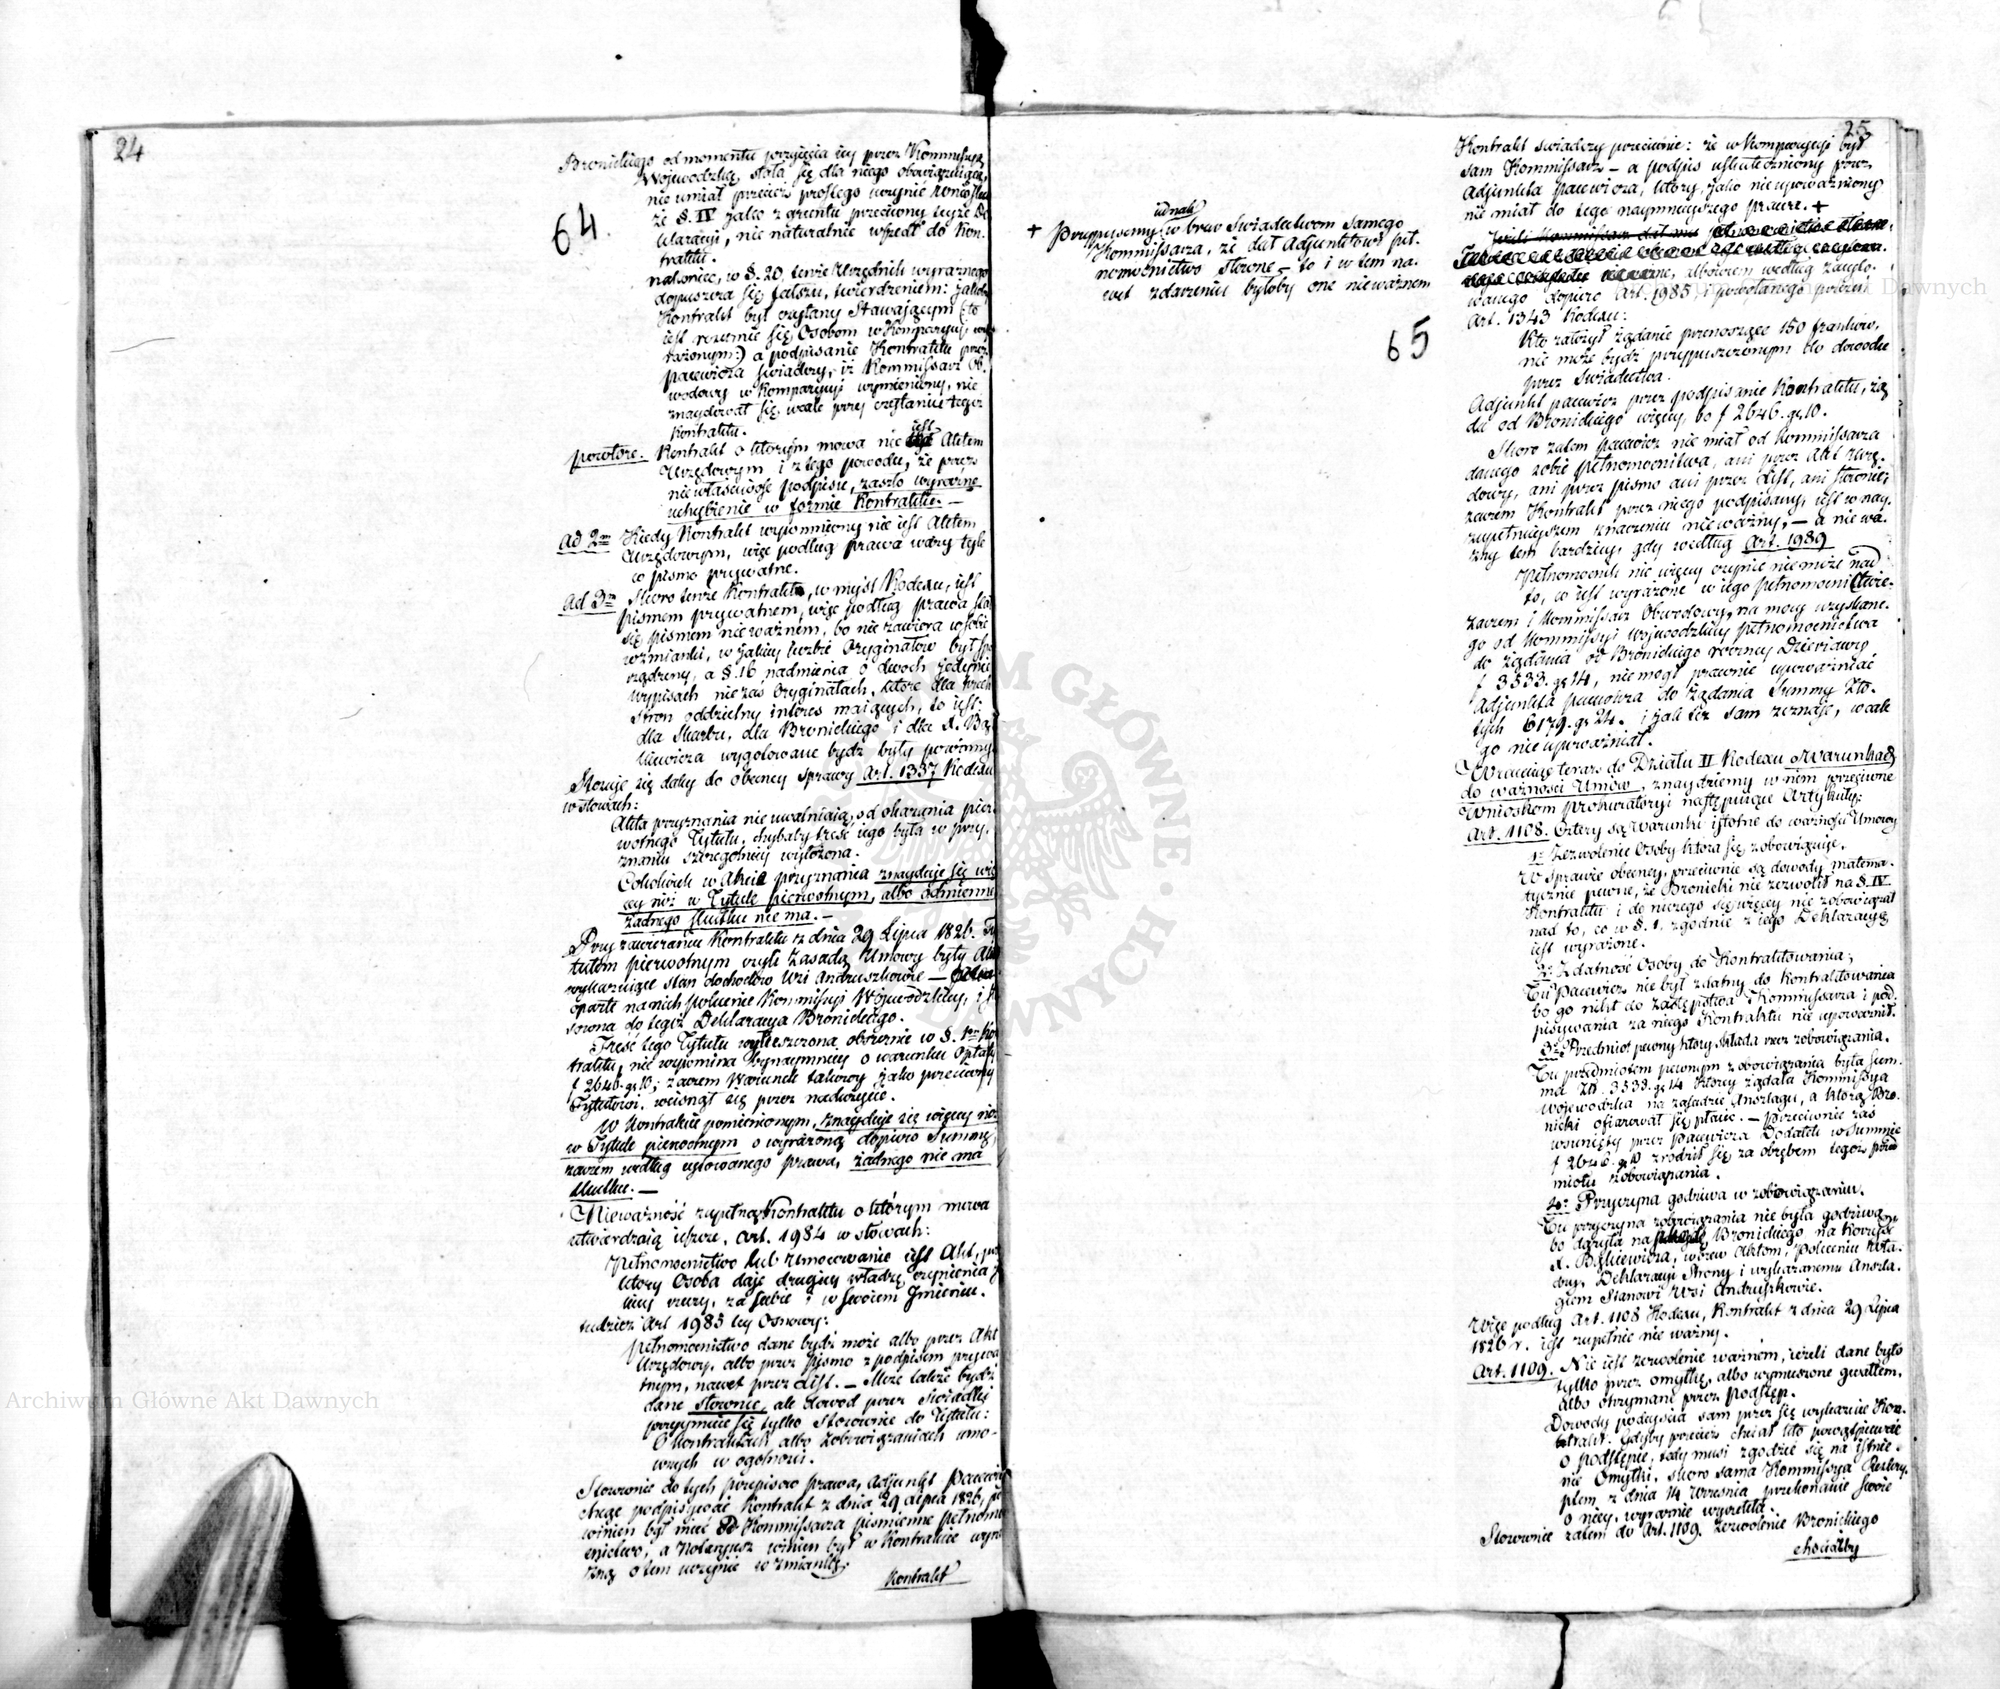 24
64.
Bronickiego od momentu przyjęcia iey przez Kommissyą
Wojewodzką, stała się dla niego obowiązującą,
nie umiał przecież prostego uczynić wniosku
że §. IV jako z gruntu przeciwny teyże De
klaracyi, nie naturalnie wszedł do Kon.
traktu.
nakoniec, w §. 20, tenże Urzędnik wyraźnego
dopuszcza się fałszu, twierdzeniem: jakoby
Kontrakt był czytany Stawającym (:to
iest rozumie się Osobom w Komparycyi wy
rażonym:) a podpisanie Kontraktu przez
Pacewicza świadczy, iż Kommissarz Ob.
wodowy w Komparycyi wymieniony, nie
znaydował się wcale przy czytaniu tegoż
Kontraktu.
powtóre. Kontrakt o którym mowa nie iest Aktem
Urzędowym i z tego powodu, że przez
niewłaściwość podpisu, zaszło wyraźne
uchybienie w formie Kontraktu. —
Ad 2m Kiedy Kontrakt wspomniony nie iest Aktem
Urzędowym, więc podług prawa waży tyle
co pismo prywatne.
Ad 3m Skoro tenże Kontrakt, w myśl Kodexu, iest
pismem prywatnem, więc podług prawa sta
się pismem nie ważnem, bo nie zawiera w sobie
wzmianki, w jakiey liczbie Oryginałów był spo
rządzony, a §. 16 nadmienia o dwóch jedynie
Wypisach nie zaś Oryginałach, które dla trzech
Stron oddzielny interes maiących, to iest:
dla Skarbu, dla Bronickiego i dla X. Bąt
kiewicza wygotowane bydź były powinny.
Stosuje się daley do obecney sprawy Art. 1337 Kodexu
w słowach:
Akta przyznania nie uwalniaią, od okazania pier.
wotnego Tytułu, chybaby treść iego była w przy.
znaniu szczególniey wyłożona.
Cokolwiek w Akcie przyznania znayduje się wię
cey niż w Tytule pierwotnym, albo odmienne
żadnego skutku nie ma. —
Przy zawieraniu Kontraktu z dnia 29 Lipca 1826. Ty
tułem pierwotnym czyli Zasadą Umowy były Akta
wykazuiące stan dochodów Wsi Andruszkowic —
oparte na nich polecenie Kommissyi Wojewodzkiey, i sto
sowna do tegoż Deklaracya Bronickiego.
Treść tego Tytułu wyłuszczona obszernie w §. 1m Kon
traktu, nie wspomina bynaymniey o warunku Opłaty
f 2646. gr 10; zaczem Warunek takowy jako przeciwny
Tytułowi, wcisnął się przez nadużycie.
W Kontrakcie pomienionym, znayduje się więcey niż
w Tytule pierwotnym o wyrażoną dopiero Summę,
zaczem według cytowanego prawa, żadnego nie ma
skutku. —
Nieważność zupełną Kontraktu o którym mowa
utwierdzaią ieszcze, Art. 1984 w słowach:
Pełnomocnictwo lub Umocowanie iest Akt, przez
który Osoba daje drugiey władzę czynienia ja
kiey rzeczy, za siebie i w swoiem Jmieniu.
tudzież Art 1985 tey Osnowy:
pełnomocnictwo dane bydź może albo przez Akt
Urzędowy, albo przez pismo z podpisem prywa
tnym, nawet przez List. — Może także bydź
dane słownie, ale dowod przez Swiadki
przyymuie się tylko stosownie do Tytułu:
O Kontraktach albo zobowiązaniach umo-
wnych w ogolności.
Stosownie do tych przepisow prawa, Adjunkt Pacewicz
chcąc podpisywać Kontrakt z dnia 29 Lipca 1826, po
winien był mieć od Kommissarza piśmienne pełnomo
cnictwo, a Notaryusz winien był w Kontrakcie wyra
źną o tem uczynić wzmiankę.
Kontrakt
25
65
+ Przypuśćmy iednak wbrew Swiadectwom samego
Kommissarza, że dał Adjunktowi peł.
nomocnictwo słowne — to i w tem na.
wet zdarzeniu byłoby one nieważnem
Kontrakt świadczy przeciwnie: że w Komparycyi był
sam Kommissarz — a podpis uskuteczniony przez
Adjunkta Pacewicza, który, jako nie upoważniony
nie miał do tego naymnieyszego prawa. +
albowiem według zacyto.
wanego dopiero Art. 1985, i powołanego poźniey
Art. 1343 Kodexu:
Kto założył żądanie przenoszące 150 franków,
nie może bydź przypuszczonym do dowodu
przez Swiadectwa.
Adjunkt Pacewicz przez podpisanie Kontraktu, żą
da od Bronickiego więcey, bo f 2646. gr 10.
Skoro zatem Pacewicz nie miał od Kommissarza
danego sobie pełnomocnictwa, ani przez Akt Urzę.
dowy, ani przez pismo ani przez List, ani słownie;
zaczem Kontrakt przez niego podpisany, iest w nay.
zupełnieyszem znaczeniu nieważny, — a nie wa.
żny tem bardziey, gdy według Art. 1989
Pełnomocnik nic więcey czynić nie może nad
to, co iest wyrażone w iego pełnomocnictwie.
zaczem i Kommissarz Obwodowy, na mocy uzyskane.
go od Kommissyi Wojewodzkiey pełnomocnictwa
do żądania od Bronickiego roczney Dzierżawy
f 3533. gr 14, nie mogł prawnie upoważniać
Adjunkta Pacewicza do żądania Summy Zło.
tych 6179. gr 24. i jak też sam zeznaje, wcale
go nie upoważniał.
Wracaiąc teraz do Działu II Kodexu o Warunkach
do ważności Umów, znaydziemy w nim przeciwne
Wnioskom Prokuratoryi następuiące Artykuły:
Art. 1108. Cztery są Warunki istotne do ważności Umowy
1e Zezwolenie Osoby która się zobowiązuje.
W Sprawie obecney, przeciwnie są dowody matema.
tycznie pewne, że Bronicki nie zezwolił na §. IV
Kontraktu i do niczego się więcey nie zobowiązał
nad to, co w §. 1. zgodnie z iego Deklaracyą
iest wyrażone.
2e Zdatność Osoby do Kontraktowania;
Tu Pacewicz nie był zdatny do Kontraktowania
bo go nikt do zastępstwa Kommissarza i pod.
pisywania za niego Kontraktu nie upoważnił.
3e Przedmiot pewny który składa rzecz zobowiązania.
Tu przedmiotem pewnym zobowiązania była Sum.
ma Zł. 3533. gr 14 ktorey żądała Kommissya
Wojewodzka na zasadzie Anszlagu, a ktorą Bro.
nicki ofiarował się płacić. — Przeciwnie zaś
wsunięty przez Pacewicza Dodatek w Summie
f 2646. gr 10 zrodził się za obrębem tegoż przed
miotu zobowiązania.
4e Przyczyna godziwa w zobowiązaniu.
Tu przyczyna zobowiązania nie była godziwą
bo dążyła na Bronickiego na korzyść
X. Bątkiewicza, wbrew Aktom, Poleceniu Wła.
dzy, Deklaracyi Strony i wykazanemu Anszla.
giem Stanowi Wsi Andruszkowic.
Więc podług Art. 1108 Kodexu, Kontrakt z dnia 29 Lipca
1826 r. iest zupełnie nie ważny.
Art. 1109. Nie iest zezwolenie ważnem, ieżeli dane było
tylko przez omyłkę, albo wymuszone gwałtem,
albo otrzymane przez podstęp.
Dowody podeyścia sam przez się wykazuie Kon.
trakt. Gdyby przecież chciał kto powątpiewać
o podstępie, tedy musi zgodzić się na istnie.
nie Omyłki, skoro sama Kommissya Reskry.
ptem z dnia 14 Września przekonanie swoie
o niey, wyraźnie wyrzekła.
Stosownie zatem do Art. 1109. zezwolenie Bronickiego
chociażby
Archiwum Główne Akt Dawnych